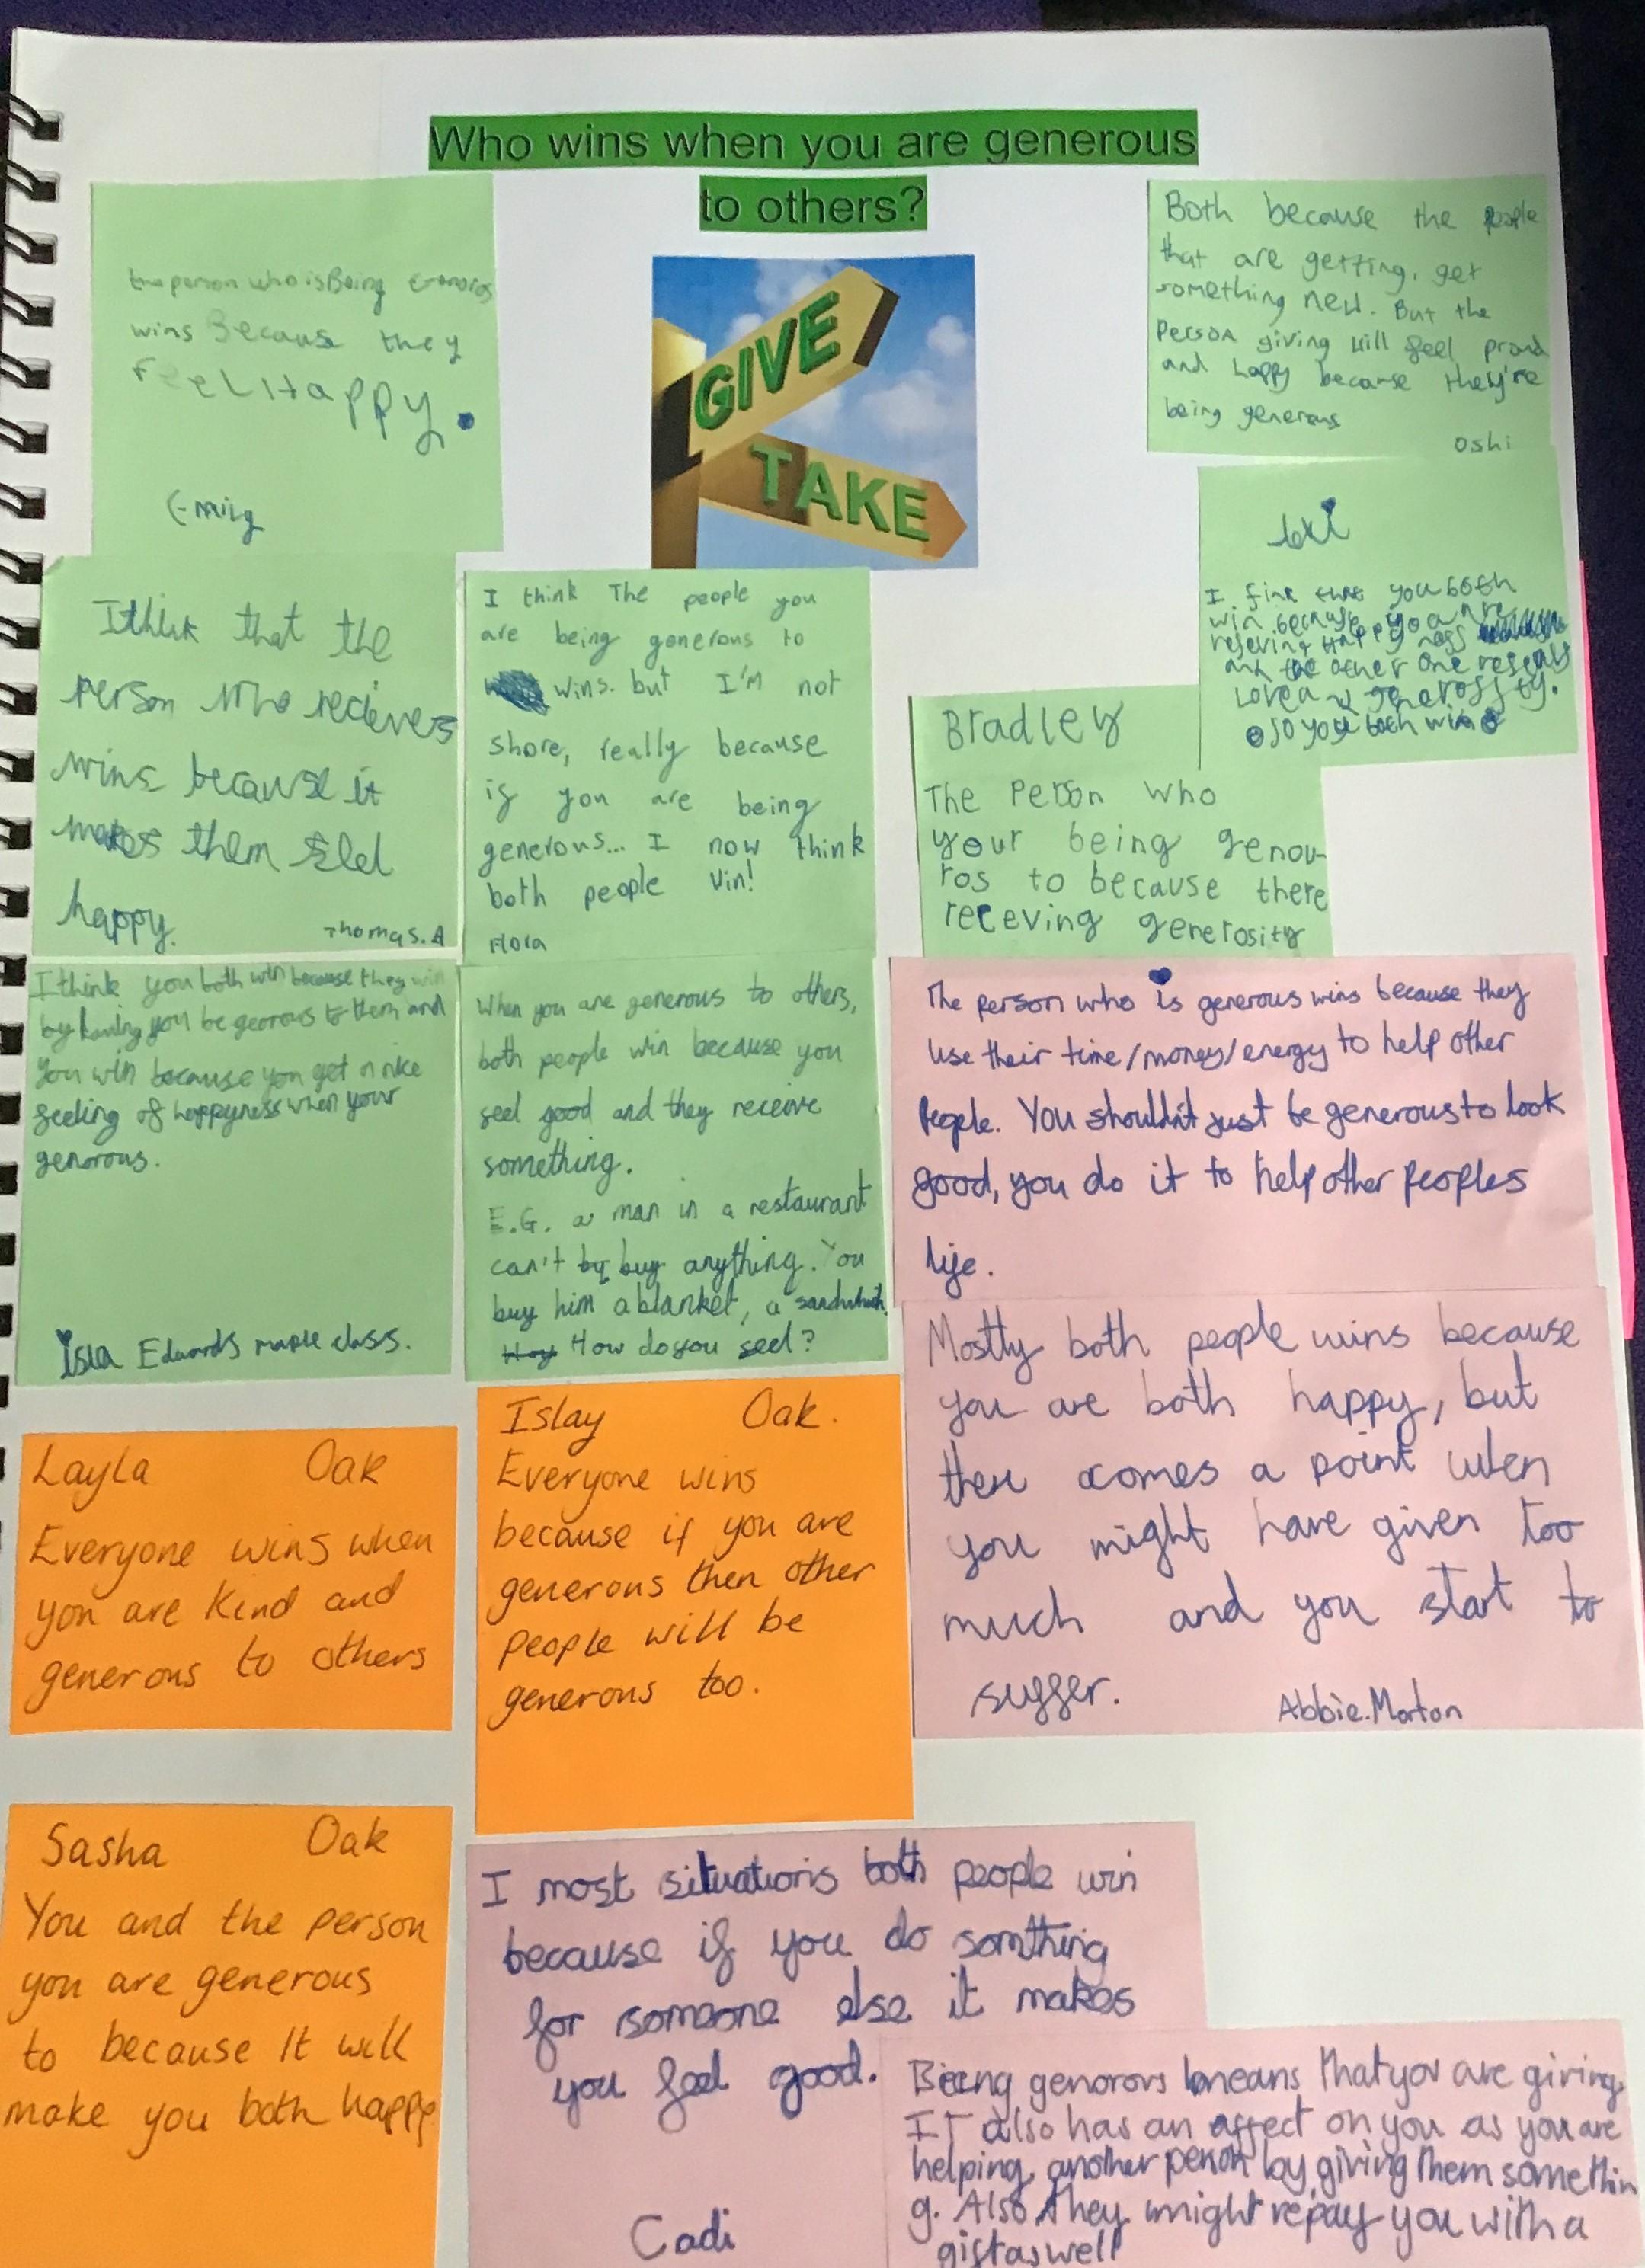 Who wins when you are generous
to others?
the person who is Being Genoros
wins Because they
FeeL Happy.
Emily
GIVE
TAKE
Both because the people
that are getting, get
something new. But the
Person giving will feel proud
and happy because they're
being generous
Oshi
lexi
I fink that you both
win because you are
reseving happyness
and the other one reseavs
Love and generossity.
so you both win
I think that the
person who recievers
wins because it
makes them feel
happy.
Thomas.A
I think The people you
are being generous to
wins. but I'M not
shore, really because
if you are being
generous... I now think
both people Vin!
Flora
Bradley
The Person who
your being genou-
ros to because there
receving generosity
I think you both win because they win
by having you be georous to them and
you win because you get a nice
feeling of happyness when your
genorous.
Isla Edwards maple class.
When you are generous to others,
both people win because you
feel good and they receive
something.
E.G. a man in a restaurant
can't by buy anything. You
buy him a blanket, a sandwhich.
How do you feel?
The person who is generous wins because they
use their time/money/energy to help other
People. You shouldn't just be generous to look
good, you do it to help other peoples
life.
Mostly both people wins because
you are both happy, but
there comes a point when
you might have given too
much and you start to
suffer.
Abbie.Morton
Layla Oak
Everyone wins when
you are kind and
generous to others
Islay Oak.
Everyone wins
because if you are
generous then other
people will be
generous too.
Sasha Oak
You and the person
you are generous
to because It will
make you both happy
I most situations both people win
because if you do somthing
for someone else it makes
you feel good.
Cadi
Being genorors means that you are giving.
IT also has an affect on you as you are
helping another person by giving them somethin
g. Also they might repay you with a
gift as well